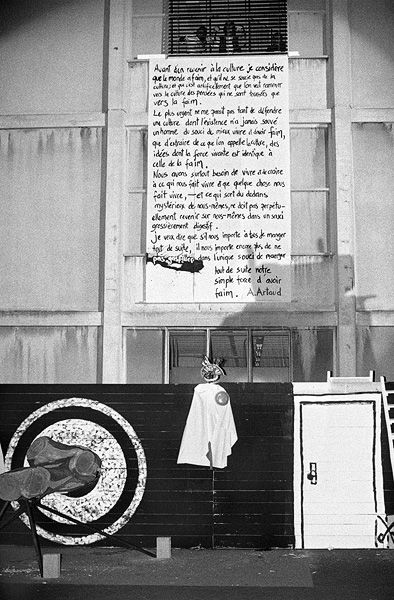 Avant d'en revenir à la culture je considère
que le monde a faim, et qu'il ne se soucie pas de la
culture; et que c'est artificiellement que l'on veut ramener
vers la culture des pensées qui ne sont tournées que
vers la faim.
Le plus urgent ne me paraît pas tant de défendre
une culture dont l'existence n'a jamais sauvé
un homme du souci de mieux vivre et d'avoir faim,
que d'extraire de ce que l'on appelle la culture, des
idées dont la force vivante est identique à
celle de la faim.
Nous avons surtout besoin de vivre et de croire
à ce qui nous fait vivre et que quelque chose nous
fait vivre, — et ce qui sort du dedans
mystérieux de nous-mêmes, ne doit pas perpétu-
ellement revenir sur nous-mêmes dans un souci
grossièrement digestif.
Je veux dire que s'il nous importe à tous de manger
tout de suite, il nous importe encore plus de ne
pas gaspiller dans l'unique souci de manger
tout de suite notre
simple force d'avoir
faim. A. Artaud